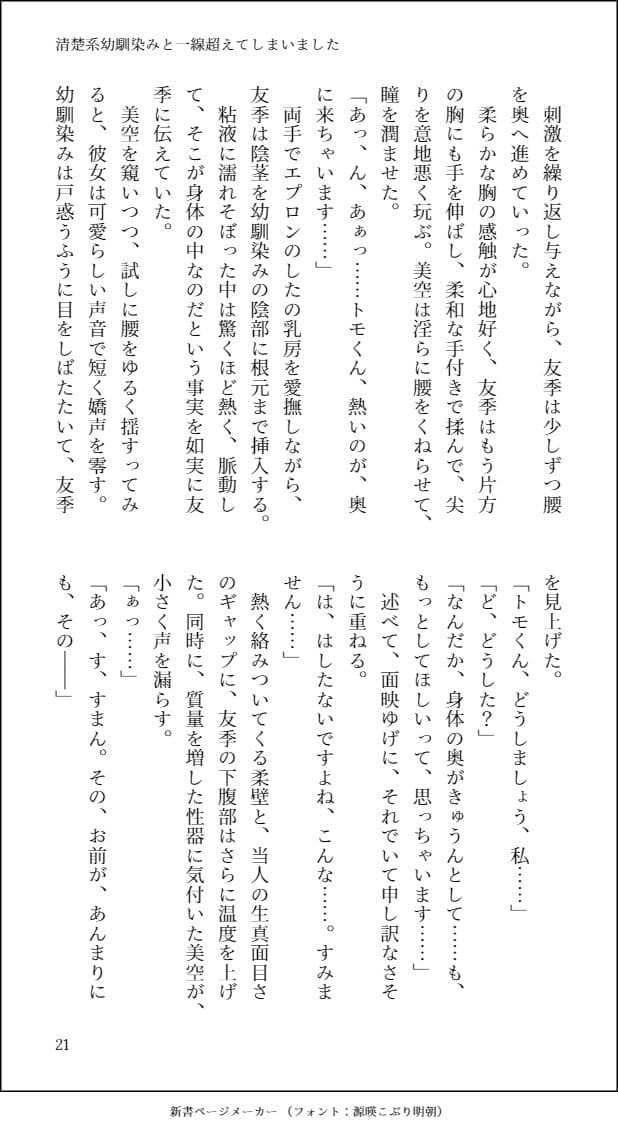 清楚系幼馴染みと一線超えてしまいました
　刺激を繰り返し与えながら、友季は少しずつ腰
を奥へ進めていった。
　柔らかな胸の感触が心地好く、友季はもう片方
の胸にも手を伸ばし、柔和な手付きで揉んで、尖
りを意地悪く玩ぶ。美空は淫らに腰をくねらせて、
瞳を潤ませた。
「あっ、ん、あぁっ……トモくん、熱いのが、奥
に来ちゃいます……」
　両手でエプロンのしたの乳房を愛撫しながら、
友季は陰茎を幼馴染みの陰部に根元まで挿入する。
　粘液に濡れそぼった中は驚くほど熱く、脈動し
て、そこが身体の中なのだという事実を如実に友
季に伝えていた。
　美空を窺いつつ、試しに腰をゆるく揺すってみ
ると、彼女は可愛らしい声音で短く嬌声を零す。
幼馴染みは戸惑うふうに目をしばたたいて、友季
を見上げた。
「トモくん、どうしましょう、私……」
「ど、どうした？」
「なんだか、身体の奥がきゅうんとして……も、
もっとしてほしいって、思っちゃいます……」
　述べて、面映ゆげに、それでいて申し訳なさそ
うに重ねる。
「は、はしたないですよね、こんな……。すみま
せん……」
　熱く絡みついてくる柔壁と、当人の生真面目さ
のギャップに、友季の下腹部はさらに温度を上げ
た。同時に、質量を増した性器に気付いた美空が、
小さく声を漏らす。
「ぁっ……」
「あっ、す、すまん。その、お前が、あんまりに
も、その――」
21
新書ページメーカー（フォント：源暎こぶり明朝）